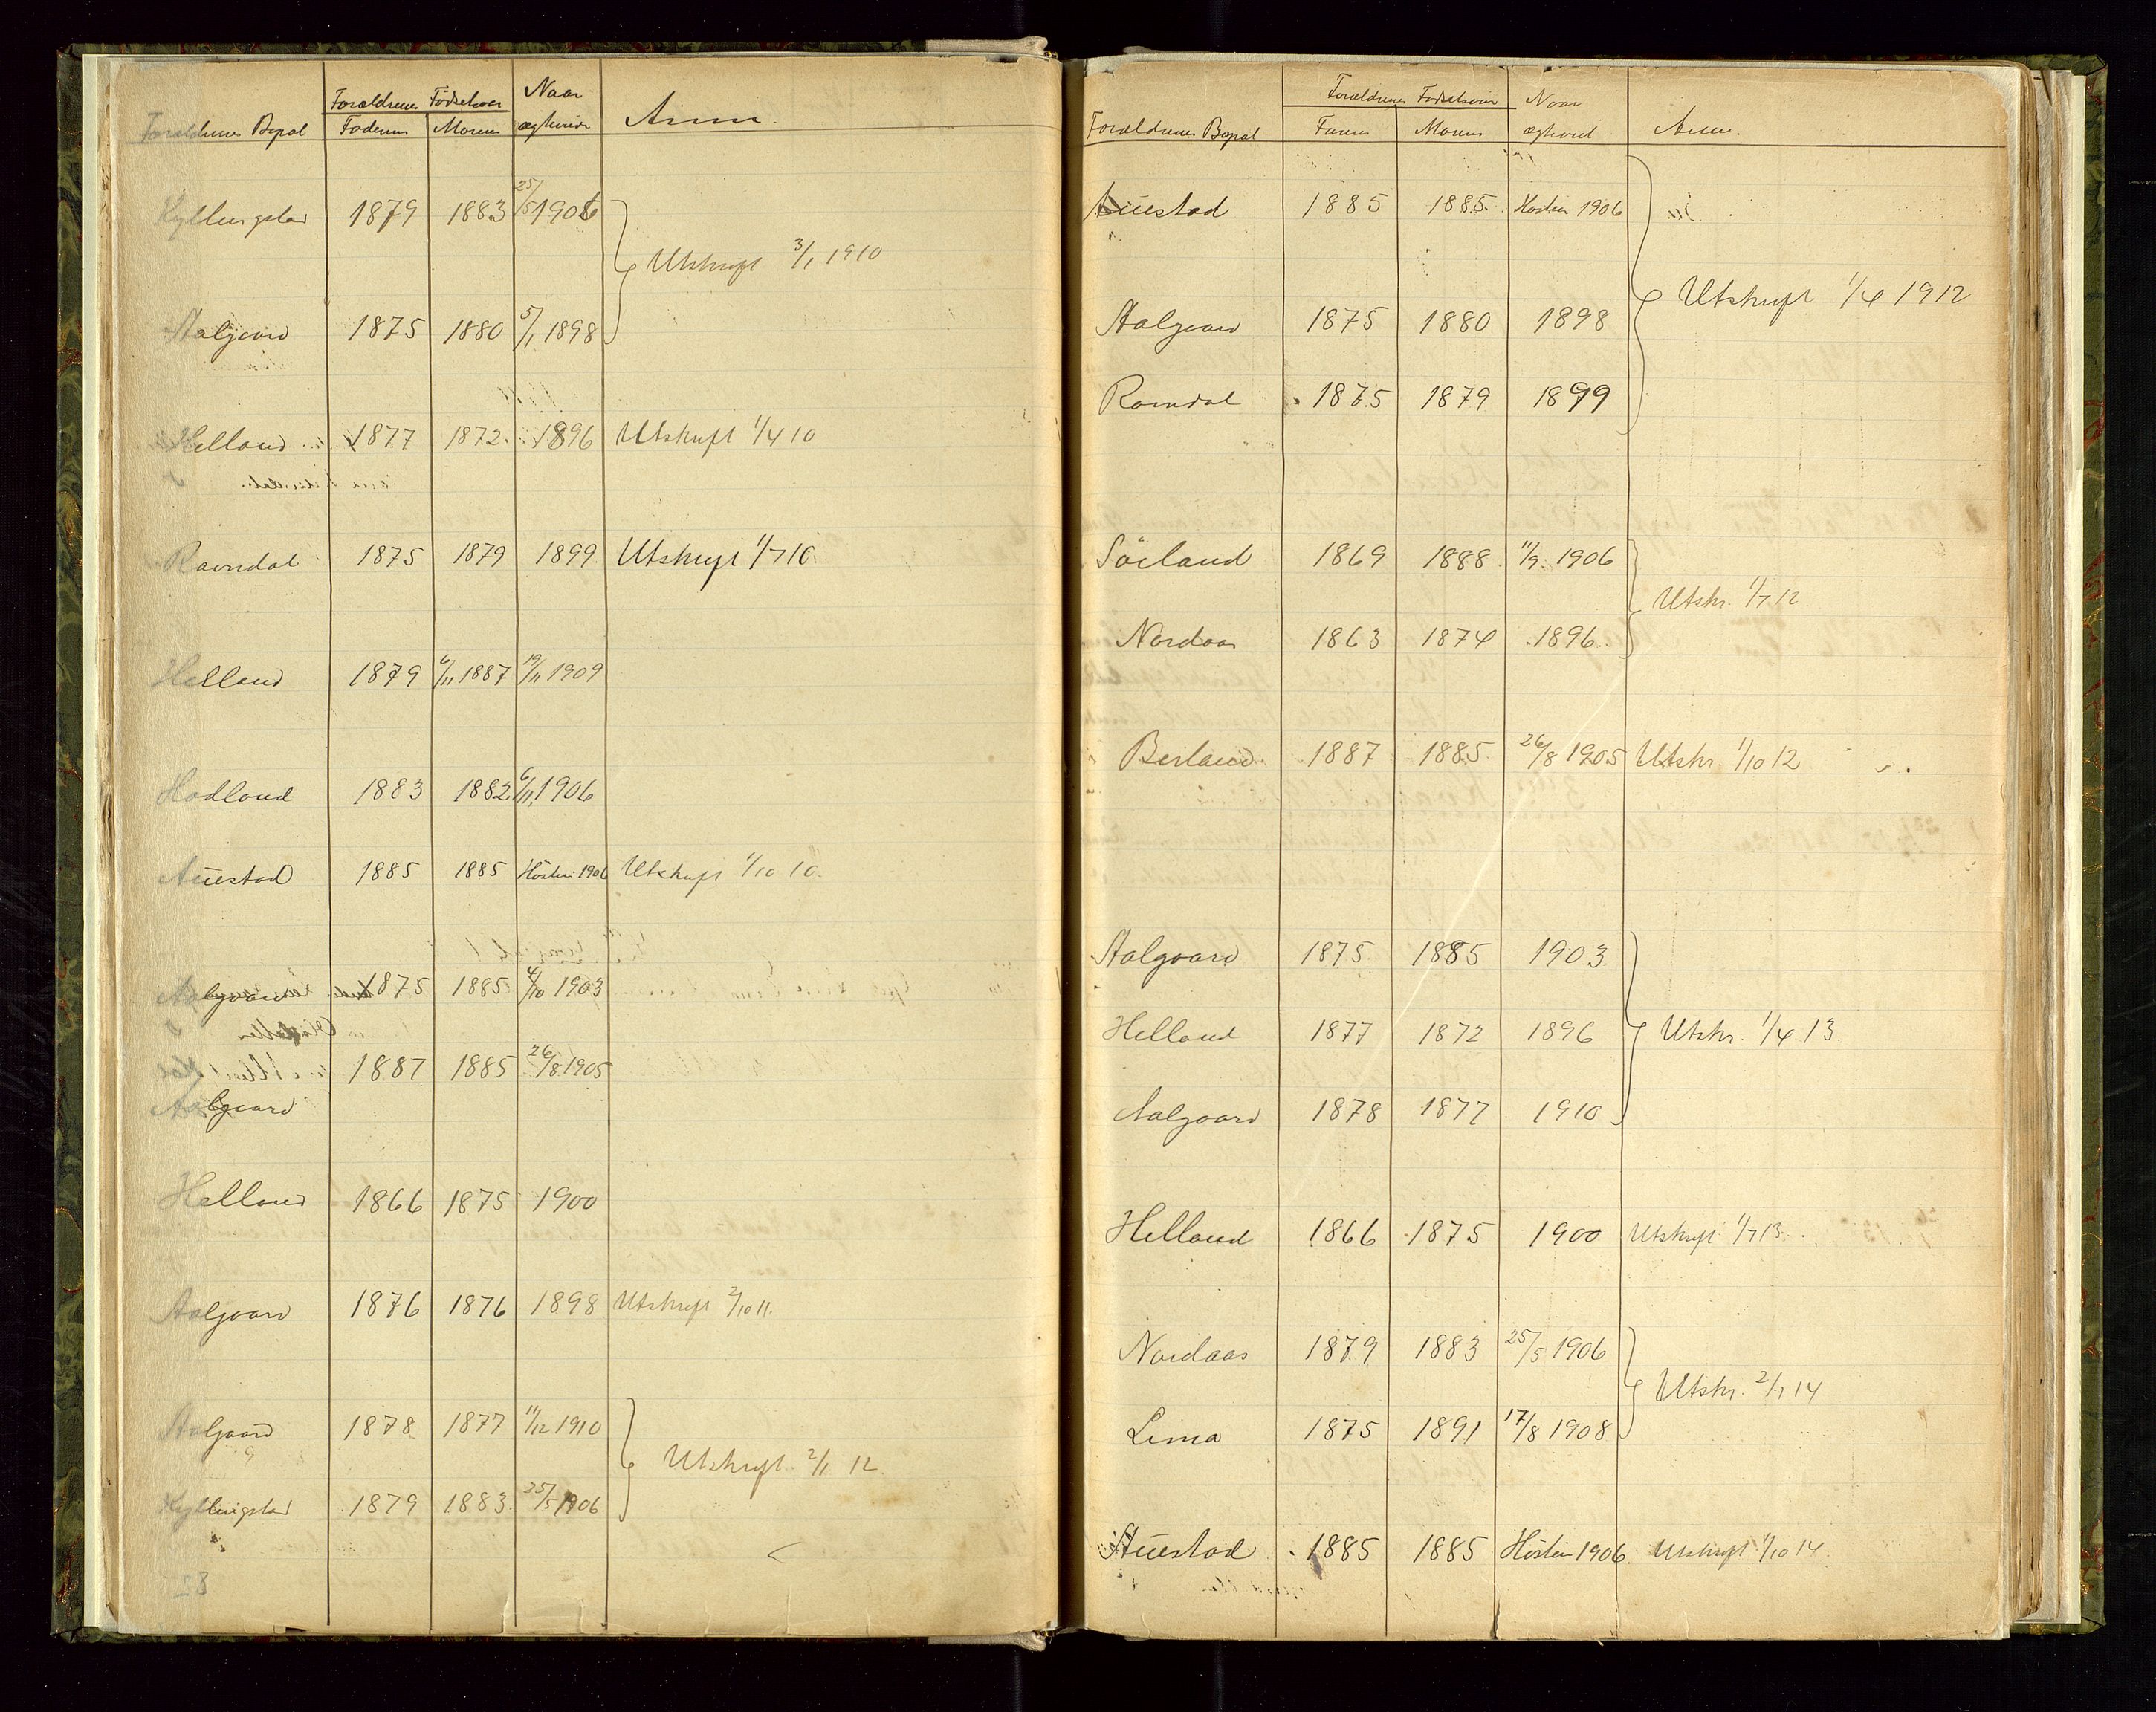 Forældrenes Bopæl | Forældrenes Fødselsaar | Naar ægteviede | Anm.
Faderens | Morens
Kyllingstad 1879 1883 25/5 1906
Utskrift 3/1 1910
Aalgaard 1875 1880 5/1 1898
Helland 1877 1872 1896 Utskrift 1/4 10
Ravndal 1875 1879 1899 Utskrift 1/7 10
Helland 1879 6/11 1887 19/11 1909
Hadland 1883 1882 6/11 1906
Auestad 1885 1885 Høsten 1906 Utskrift 1/10 10.
Aalgaard 1875 1885 4/10 1903
1887 1885 26/8 1905
Aalgaard
Helland 1866 1875 1900
Aalgaard 1876 1876 1898 Utskrift 2/10 11.
Aalgaard 1878 1877 11/12 1910
Utskrift 2/1 12
Kyllingstad 1879 1883 25/5 1906
Forældrenes Bopæl | Forældrenes Fødselsaar | Naar ægteviet | Anm.
Farens | Morens
Auestad 1885 1885 Høsten 1906
Utskrift 1/4 1912
Aalgaard 1875 1880 1898
Ravndal 1875 1879 1899
Sörland 1869 1888 11/9 1906
Utskr. 1/7 12
Nordaas 1863 1874 1896
Berland 1887 1885 26/8 1905 Utskr. 1/10 12
Aalgaard 1875 1885 1903
Helland 1877 1872 1896 Utskr. 1/4 13.
Aalgaard 1878 1877 1910
Helland 1866 1875 1900 Utskrift 1/7 13
Nordaas 1879 1883 25/5 1906
Utskr. 2/1 14
Lima 1875 1891 17/8 1908
Auestad 1885 1885 Høsten 1906. Utskrift 1/10 14.